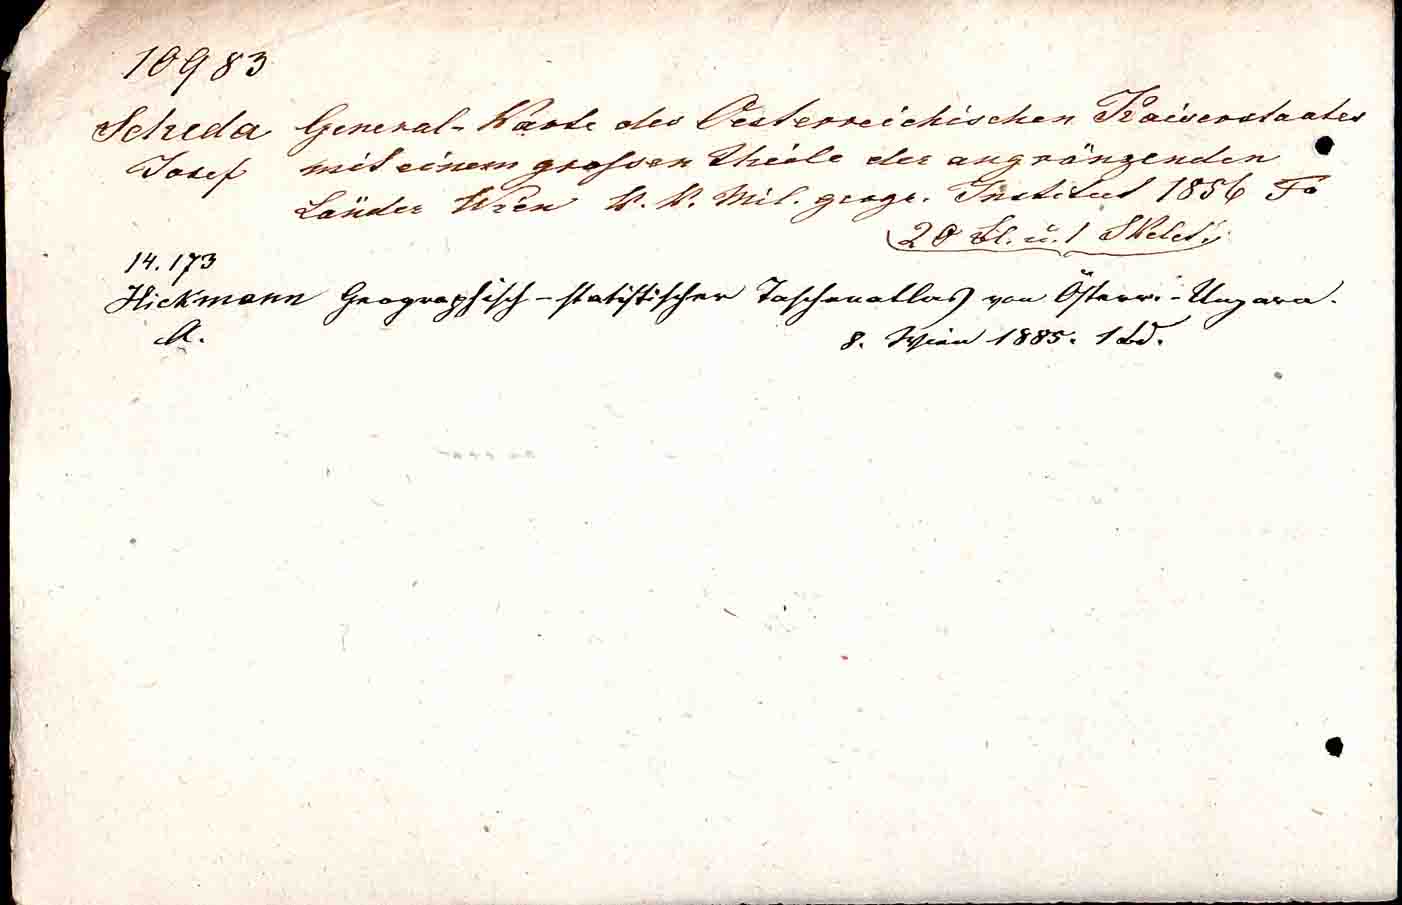 10983
Scheda General-Karte des Oesterreichischen Kaiserstaates
Josef mit einem grossen Theile der angränzenden
Länder Wien K. K. Mil. geogr. Institut 1856 Fo
20 Bl. u. 1 Skelet.
14.173
Hickmann Geographisch-statistischer Taschenatlas von Österr.-Ungarn.
A. 8. Wien 1885. 1 Bd.